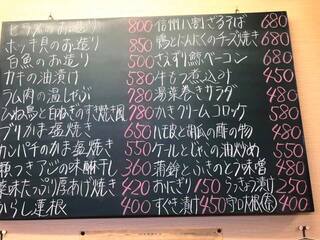 ヒラメのお造り 800
ホッキ貝のお造り 850
白魚のお造り 500
カキの油漬け 580
ラム肉の温しゃぶ 780
ひね鳥と白ねぎのすき焼き風 780
ブリかま塩焼き 650
カンパチのかま塩焼き 550
頭つきアジの味醂干し 360
薬味たっぷり厚あげ焼き 420
からし蓮根 400
信州八割ざるそば 680
鴨とにんにくのチーズ焼き 680
さえずり鯨ベーコン 680
牛もつ煮込み 450
湯葉巻きサラダ 480
かきクリームコロッケ 580
の酢の物 480
ケールとじゃこの油炒め 550
蒲鉾とふきのとう味噌 480
おにぎり 150 らっきょう漬け 250
すぐき漬け 450 守口大根 400